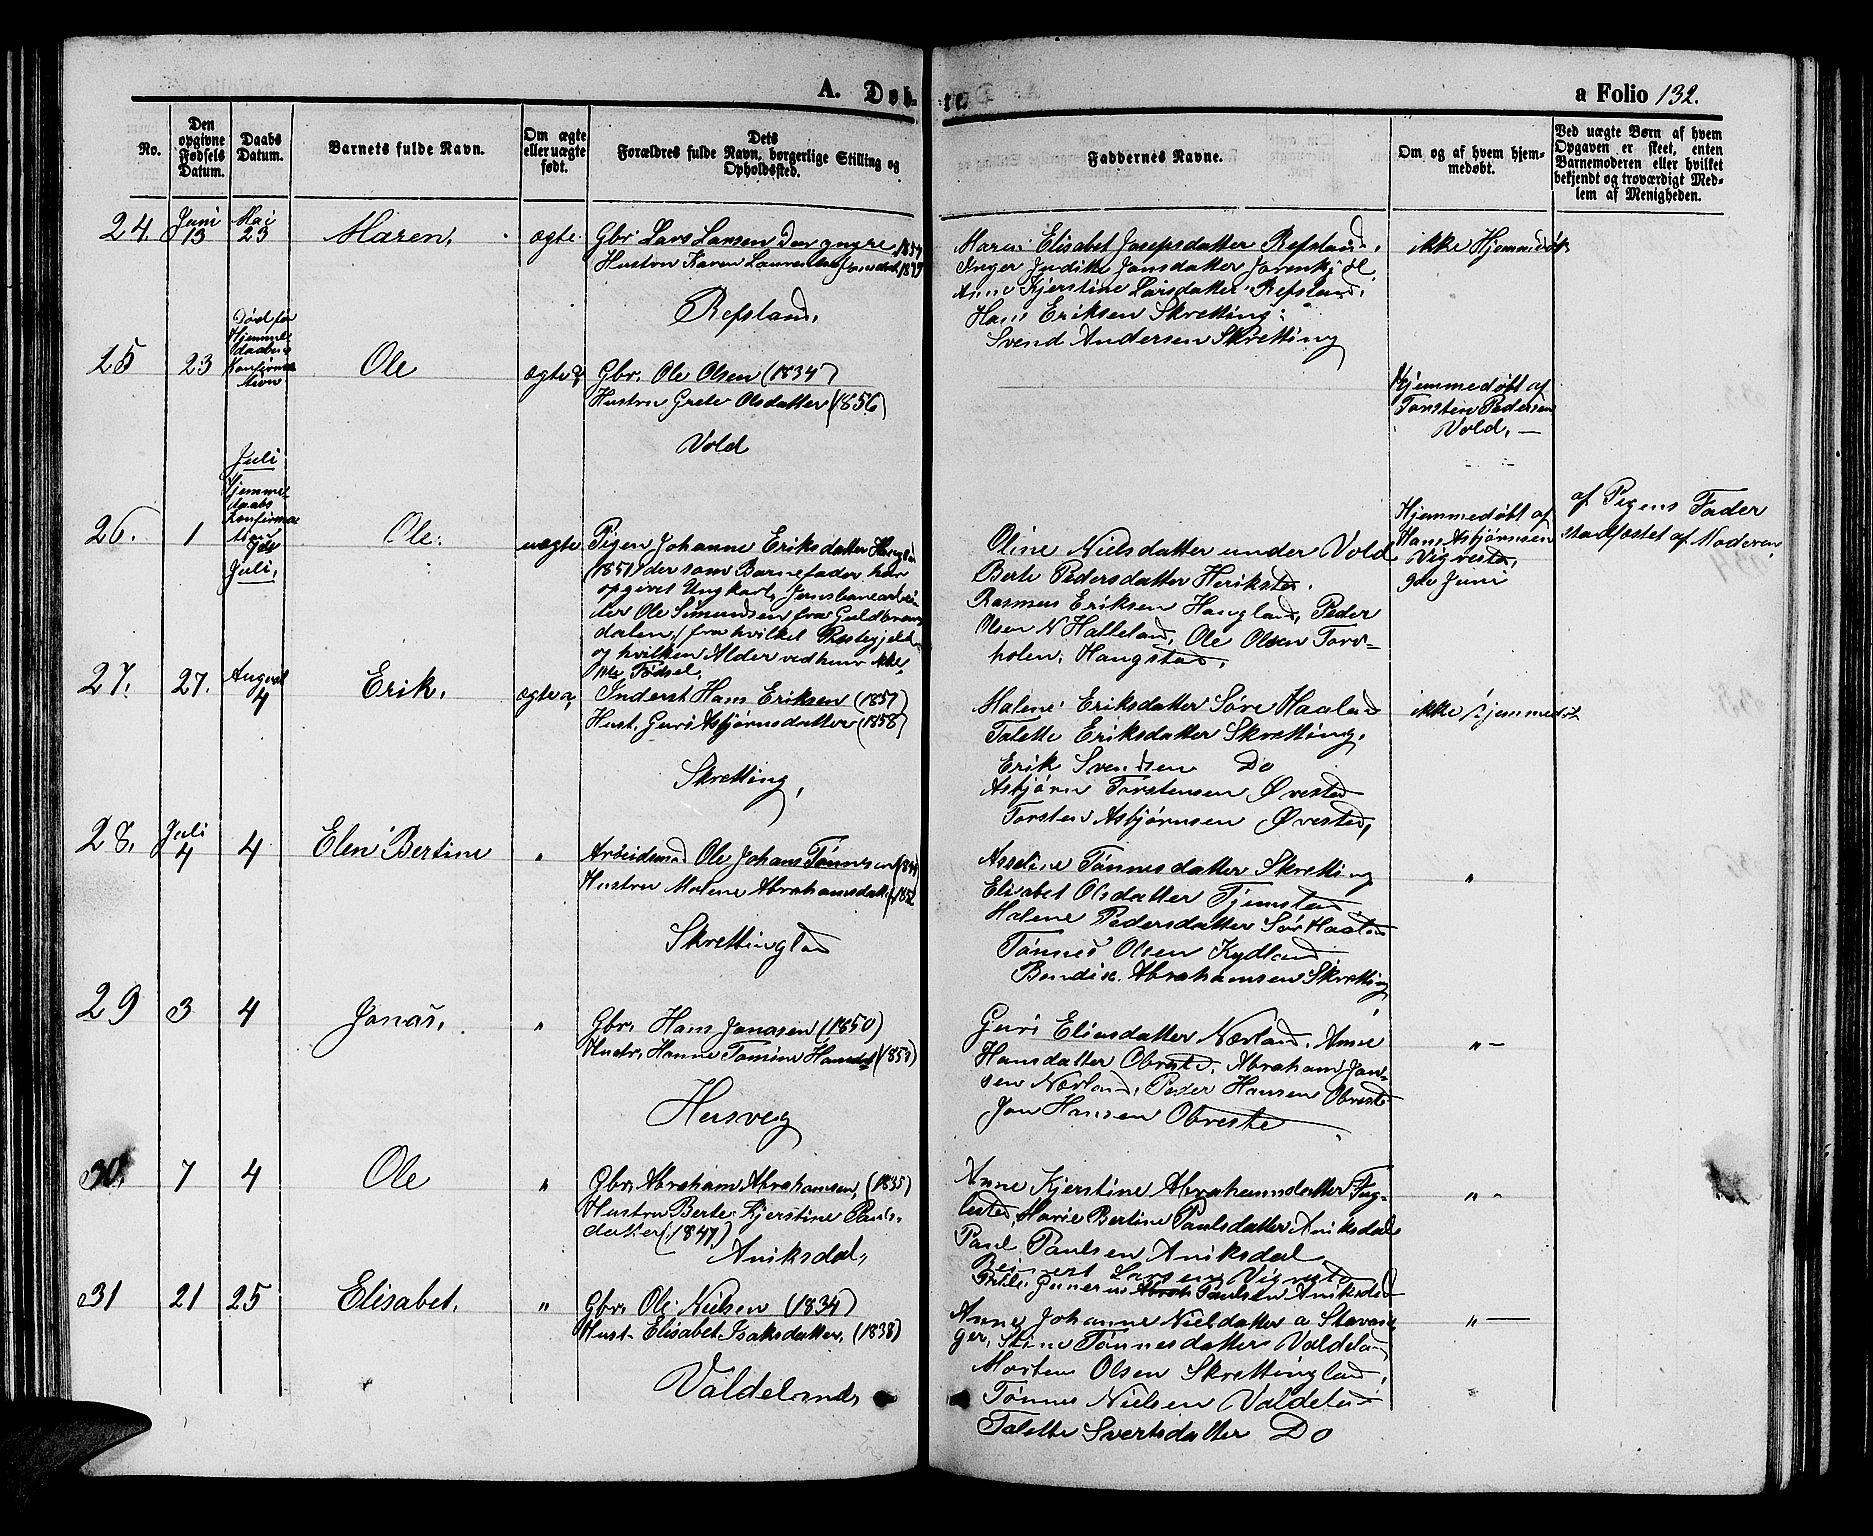 A. Døb-
te
a Folio 132.
No.
Den opgivne Fødsels Datum.
Daabs Datum.
Barnets fulde Navn.
Om ægte eller uægte født.
Dets Forældres fulde Navn, borgerlige Stilling og Opholdssted.
Faddernes Navne.
Om og af hvem hjemmedøbt.
Ved uægte Børn af hvem Opgaven er skeet, enten Barnemoderen eller hvilket bekjendt og troværdigt Medlem af Menigheden.
24.
Juni
13
Mai
23
Maren,
ægte
Gbr. Lars Larsen
Hustru Karen
Refsland,
Maren Elisabet Josepsdatter Refsland,
Inger Judithe Jonsdatter
Anne Kjerstine Larsdatter Refsland,
Hans Eriksen Skretting
Svend Andersen Skretting
ikke Hjemmedøbt
25
23
Død før
Hjemme
daabens
Konfirma
tion
Ole
ægte
Gbr. Ole Olsen (1834)
Hustru Grete Olsdatter (1856)
Vold
Hjemmedøbt af
Torsten Pedersen
Vold, —
26.
1
Juli
Hjemme
daabs
Konfirma
tion
Juli,
Ole
uægte
Pigen Johanne Eriksdatter
(1851) der som Barnefader har
opgivet Ungkarl, Jernbanearbei-
der Ole Simundsen fra Guldbrans
dalen, fra hvilket Prestegjeld
og hvilken Alder ved hun ikke,
Fødsel,
Oline Nielsdatter under Vold
Berte Pedersdatter Herikstad
Rasmus Eriksen Haugland, Peder
Olsen N Halleland, Ole Olsen Tors-
holen, Haugstad,
Hjemmedøbt af
Hans Asbjørnsen
Vigrestad,
9de Juni
af Pigens Fader
stadfæstet af Moderen
27.
27.
August
4
Erik,
ægte
Inderst Hans Eriksen (1857)
Hust. Guri Asbjørnsdatter (1858)
Skretting,
Malene Eriksdatter Søre Haaland
Talette Eriksdatter Skretting,
Erik Svendsen Do
Asbjørn Torstensen Øvestad
Torsten Asbjørnsen Øvestad,
ikke hjemmedøbt
28.
Juli
4
4
Elen Bertine
"
Arbeidsmd Ole Johans Tønnesen
Hustru Malene Abrahamsdatter (1852
Skrettingland
Asseline Tønnesdatter Skretting
Elisabet Olsdatter Tjemsland
Malene Pedersdatter Sør Haaland
Tønnes Olsen Kydland
Bendix Abrahamsen Skretting
"
29
3
4
Jonas,
"
Gbr. Hans Jonasen (1850)
Hustr. Hanne Tomine
Husveg
Guri Eliasdatter Nærland, Anne
Hansdatter Obrestad, Abraham Jon-
sen Nærland, Peder Hansen Obrestad
Jon Hansen Obrestad
" —
30.
7
4
Ole
"
Gbr. Abraham Abrahamsen, (1835)
Hustru Berte Kjerstine Pauls-
datter (1847)
Aniksdal,
Anne Kjerstine Abrahamsdatter Fug-
lestad, Marie Bertine Paulsdatter Aniksdal
Paul Paulsen Aniksdal
Reinert Larsen Vigrestad
Paulsen Aniksdal
" -
31
21
25
Elisabet.
"
Gbr. Ole Nielsen (1834)
Hust. Elisabet Isaksdatter, (1838)
Valdeland,
Anne Johanne Nielsdatter a Stavan
ger, Stine Tønnesdatter Valdeland,
Morten Olsen Skrettingland,
Tønnes Nielsen Valdeland
Talette Svertsdatter Do
" —